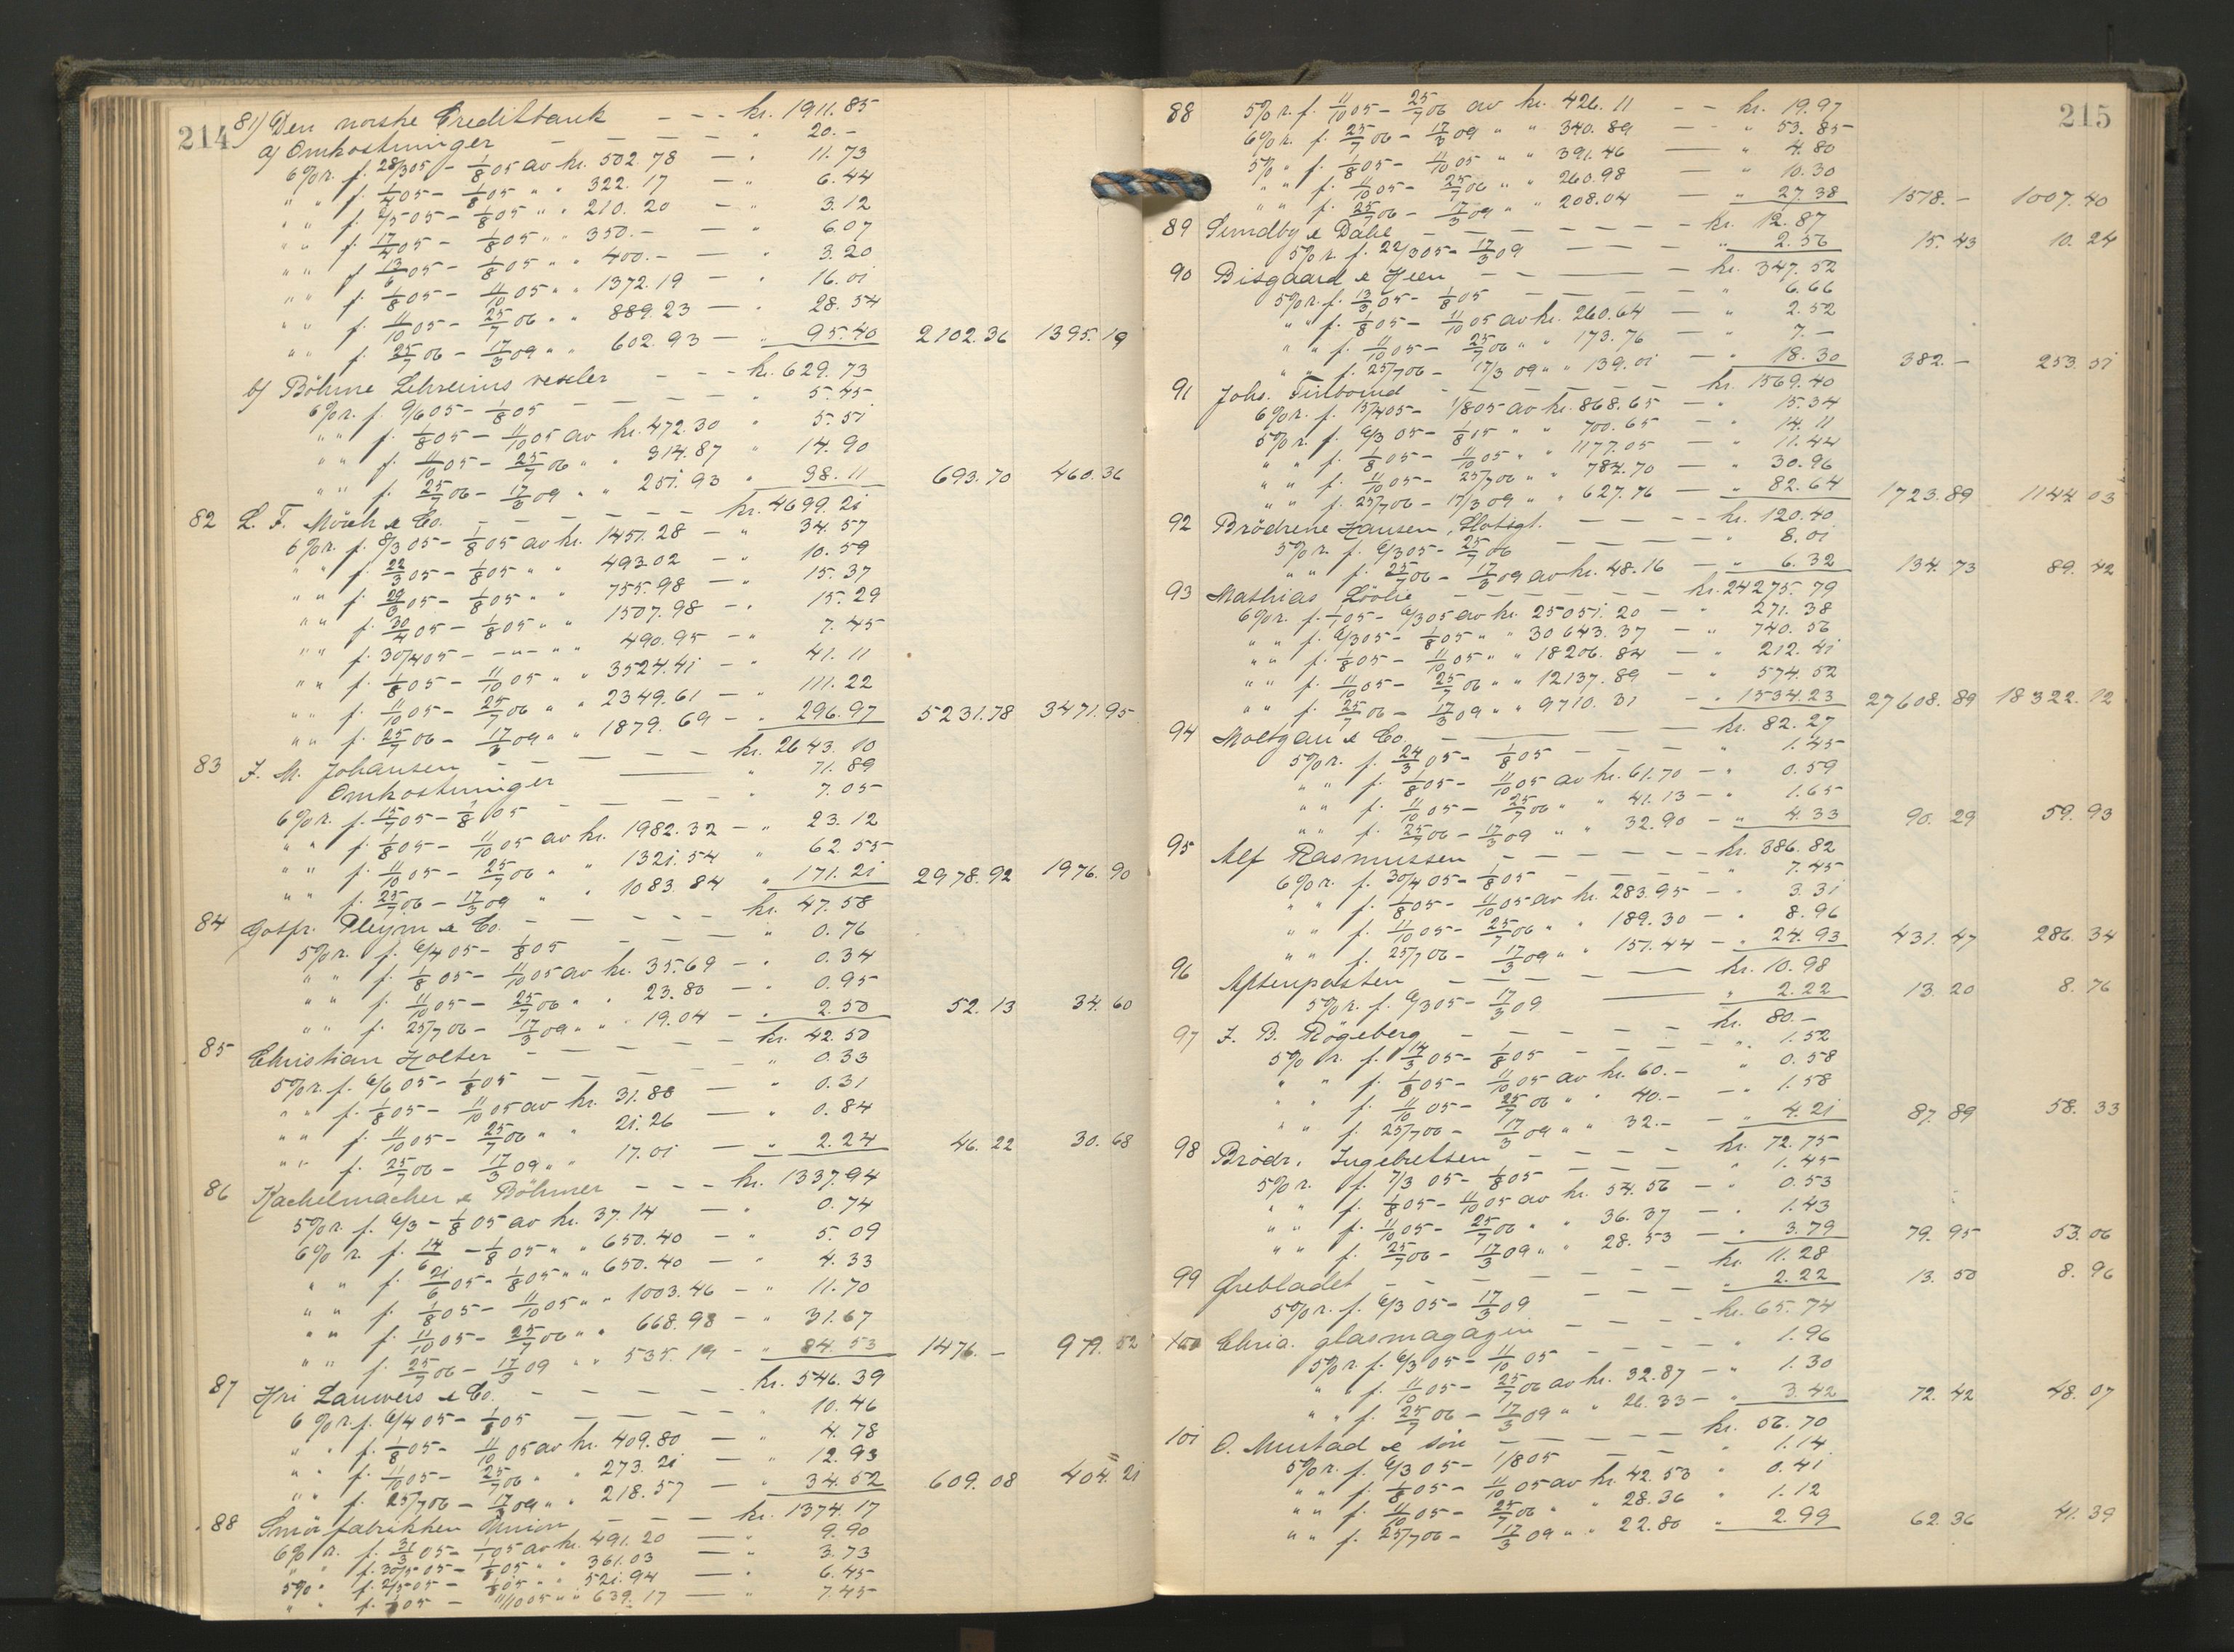 214
81) Den norske Creditbank - - - kr. 1911.85
a) Omkostninger - - - - " 20.-
6% r. f. 28/3 05 - 1/8 05 av kr. 502.78 - " 11.73
" " f. 1/4 05 - 1/8 05 " " 322.17 - " 6.44
" " f. 2/5 05 - 1/8 05 " " 210.20 - " 3.12
" " f. 17/4 05 - 1/8 05 " " 350.- - " 6.07
" " f. 13/6 05 - 1/8 05 " " 400.- - " 3.20
" " f. 1/8 05 - 11/10 05 " " 1372.19 - " 16.01
" " f. 11/10 05 - 25/7 06 " " 889.23 - " 28.54
" " f. 25/7 06 - 17/3 09 " " 602.93 - " 95.40 2102.36 1395.19
b) Böhme Lehreims veksler - - - kr. 629.73
6% r. f. 9/6 05 - 1/8 05 - - - - " 5.45
" " f. 1/8 05 - 11/10 05 av kr. 472.30 " 5.51
" " f. 11/10 05 - 25/7 06 " " 314.87 " 14.90
" " f. 25/7 06 - 17/3 09 " " 251.93 " 38.11 693.70 460.36
82 L. F. Mörch & Co. - - - - - kr. 4699.21
6% r. f. 8/3 05 - 1/8 05 av kr. 1451.28 - " 34.57
" " f. 22/3 05 - 1/8 05 " " 493.02 - " 10.59
" " f. 29/3 05 - 1/8 05 " " 755.98 - " 15.37
" " f. 30/4 05 - 1/8 05 " " 1507.98 - " 15.29
" " f. 30/4 05 - - " - " " 490.95 - " 7.45
" " f. 1/8 05 - 11/10 05 " " 3524.41 - " 41.11
" " f. 11/10 05 - 25/7 06 " " 2349.61 - " 111.22
" " f. 25/7 06 - 17/3 09 " " 1879.69 - " 296.97 5231.78 3471.95
83 F. M. Johansen - - - - - kr. 2643.10
Omkostninger - " 71.89
6% r. f. 15/7 05 - 1/8 05 - - - - " 7.05
" " f. 1/8 05 - 11/10 05 av kr. 1982.32 - " 23.12
" " f. 11/10 05 - 25/7 06 " " 1321.54 " 62.55
" " f. 25/7 06 - 17/3 09 " " 1083.84 " 171.21 2978.92 1976.90
84 Gotfr. Pleym & Co. - - - - - kr. 47.58
5% r. f. 6/4 05 - 1/8 05 - - - - " 0.76
" " f. 1/8 05 - 11/10 05 av kr. 35.69 - " 0.34
" " f. 11/10 05 - 25/7 06 " " 23.80 - " 0.95
" " f. 25/7 06 - 17/3 09 " " 19.04 - " 2.50 52.13 34.60
85 Christian Holter - - - - - kr. 42.50
5% r. f. 6/6 05 - 1/8 05 - - - - " 0.33
" " f. 1/8 05 - 11/10 05 av kr. 31.88 - " 0.31
" " f. 11/10 05 - 25/7 06 " " 21.26 - " 0.84
" " f. 25/7 06 - 17/3 09 " " 17.01 - " 2.24 46.22 30.68
86 Kachelmacher & Böhmer - - - kr. 1337.94
5% r. f. 6/3 - 1/8 05 av kr. 37.14 - " 0.74
6% r. f. 14/6 - 1/8 05 " " 650.40 - " 5.09
" " f. 21/6 05 - 1/8 05 " " 650.40 - " 4.33
" " f. 1/8 05 - 11/10 05 " " 1003.46 - " 11.70
" " f. 11/10 05 - 25/7 06 " " 668.98 - " 31.67
" " f. 25/7 06 - 17/3 09 " " 535.19 - " 84.53 1476.- 979.52
87 Hri Lauwers & Co. - - - - - kr. 546.39
6% r. f. 6/4 05 - 1/8 05 - - - - " 10.46
" " f. 1/8 05 - 11/10 05 av kr. 409.80 - " 4.78
" " f. 11/10 05 - 25/7 06 " " 273.21 - " 12.93
" " f. 25/7 06 - 17/3 09 " " 218.57 - " 34.52 609.08 404.21
88 Smörfabrikken Union - - - kr. 1374.17
6% r. f. 31/3 05 - 1/8 05 av kr. 491.20 - " 9.90
" " f. 30/5 05 - 1/8 05 " " 361.03 - " 3.73
5% " f. 2/5 05 - 1/8 05 " " 521.94 - " 6.45
" " f. 1/8 05 - 11/10 05 " " 639.17 - " 7.45
215
88 5% r. f. 11/10 05 - 25/7 06 av kr. 426.11 - - kr. 19.97
6% r. f. 25/7 06 - 17/3 09 " " 340.89 - " 53.85
5% " f. 1/8 05 - 11/10 05 " " 391.46 - " 4.80
" " f. 11/10 05 - 25/7 06 " " 260.98 - " 10.30
" " f. 25/7 06 - 17/3 09 " " 208.04 - " 27.38 1578.- 1007.40
89 Sundby & Dahl - - - - - kr. 12.87
5% r. f. 22/3 05 - 17/3 09 - - - " 2.56 15.43 10.24
90 Bisgaard & Heen - - - - kr. 347.52
5% r. f. 13/3 05 - 1/8 05 - - - - " 6.66
" " f. 1/8 05 - 11/10 05 av kr. 260.64 - " 2.52
" " f. 11/10 05 - 25/7 06 " " 173.76 - " 7.-
" " f. 25/7 06 - 17/3 09 " " 139.01 - " 18.30 382.- 253.51
91 Johs. - - - - - kr. 1569.40
6% r. f. 15/4 05 - 1/8 05 av kr. 868.65 - " 15.34
5% r. f. 6/3 05 - 1/8 05 " " 700.65 - " 14.11
" " f. 1/8 05 - 11/10 05 " " 1177.05 - " 11.44
" " f. 11/10 05 - 25/7 06 " " 784.70 - " 30.96
" " f. 25/7 06 - 17/3 09 " " 627.76 - " 82.64 1723.89 1144.03
92 Brödrene Hansen, Slotsgt. - - - kr. 120.40
5% r. f. 6/3 05 - 25/7 06 - - - - " 8.01
" " f. 25/7 06 - 17/3 09 av kr. 48.16 - " 6.32 134.73 89.42
93 Mathias - - - - - kr. 24275.79
6% r. f. 1/1 05 - 6/3 05 av kr. 25051.20 - " 271.38
" " f. 6/3 05 - 1/8 05 " " 30643.37 - " 740.56
" " f. 1/8 05 - 11/10 05 " " 18206.84 - " 212.41
" " f. 11/10 05 - 25/7 06 " " 12137.89 - " 574.52
" " f. 25/7 06 - 17/3 09 " " 9710.31 - " 1534.23 27608.89 18322.12
94 Moltzau & Co. - - - - - kr. 82.27
5% r. f. 24/3 05 - 1/8 05 - - - - " 1.45
" " f. 1/8 05 - 11/10 05 av kr. 61.70 - " 0.59
" " f. 11/10 05 - 25/7 06 " " 41.13 - " 1.65
" " f. 25/7 06 - 17/3 09 " " 32.90 - " 4.33 90.29 59.93
95 Alf Rasmussen - - - - - kr. 386.82
6% r. f. 30/4 05 - 1/8 05 - - - - " 7.45
" " f. 1/8 05 - 11/10 05 av kr. 283.95 - " 3.31
" " f. 11/10 05 - 25/7 06 " " 189.30 - " 8.96
" " f. 25/7 06 - 17/3 09 " " 151.44 - " 24.93 431.47 286.34
96 Aftenposten - - - - kr. 10.98
5% r. f. 6/3 05 - 17/3 09 - " 2.22 13.20 8.76
97 F. B. Rögeberg - - - - - kr. 80.-
5% r. f. 14/3 05 - 1/8 05 - - - - " 1.52
" " f. 1/8 05 - 11/10 05 av kr. 60.- " 0.58
" " f. 11/10 05 - 25/7 06 " " 40.- - " 1.58
" " f. 25/7 06 - 17/3 09 " " 32.- - " 4.21 87.89 58.33
98 Brödr. Ingebretsen - - - - kr. 72.75
5% r. f. 7/3 05 - 1/8 05 - - - - " 1.45
" " f. 1/8 05 - 11/10 05 av kr. 54.56 - " 0.53
" " f. 11/10 05 - 25/7 06 " " 36.37 - " 1.43
" " f. 25/7 06 - 17/3 09 " " 28.53 - " 3.79 79.95 53.06
99 Ørebladet - - - - - kr. 11.28
5% r. f. 6/3 05 - 17/3 09 - - - " 2.22 13.50 8.96
100 Chria. glasmagazin - - - - kr. 65.74
5% r. f. 6/3 05 - 11/10 05 - - - - " 1.96
" f. 11/10 05 - 25/7 06 av kr. 32.87 - " 1.30
" " f. 25/7 06 - 17/3 09 " " 26.33 - " 3.42 72.42 48.07
101 O. Mustad & sön - - - - - kr. 56.70
5% r. f. 6/3 05 - 1/8 05 - - " 1.14
" " f. 1/8 05 - 11/10 05 av kr. 42.53 " 0.41
" " f. 11/10 05 - 25/7 06 " " 28.36 " 1.12
" " f. 25/7 06 - 17/3 09 " " 22.80 " 2.99 62.36 41.39